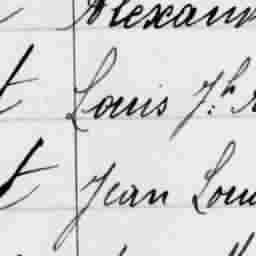 Alexan
t Louis Jh
t Jean Lou